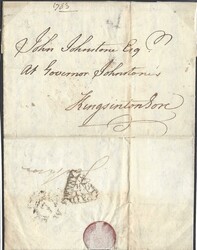 1765
John Johnstone Esqr
At Governor Johnstones
Kensinton Gore